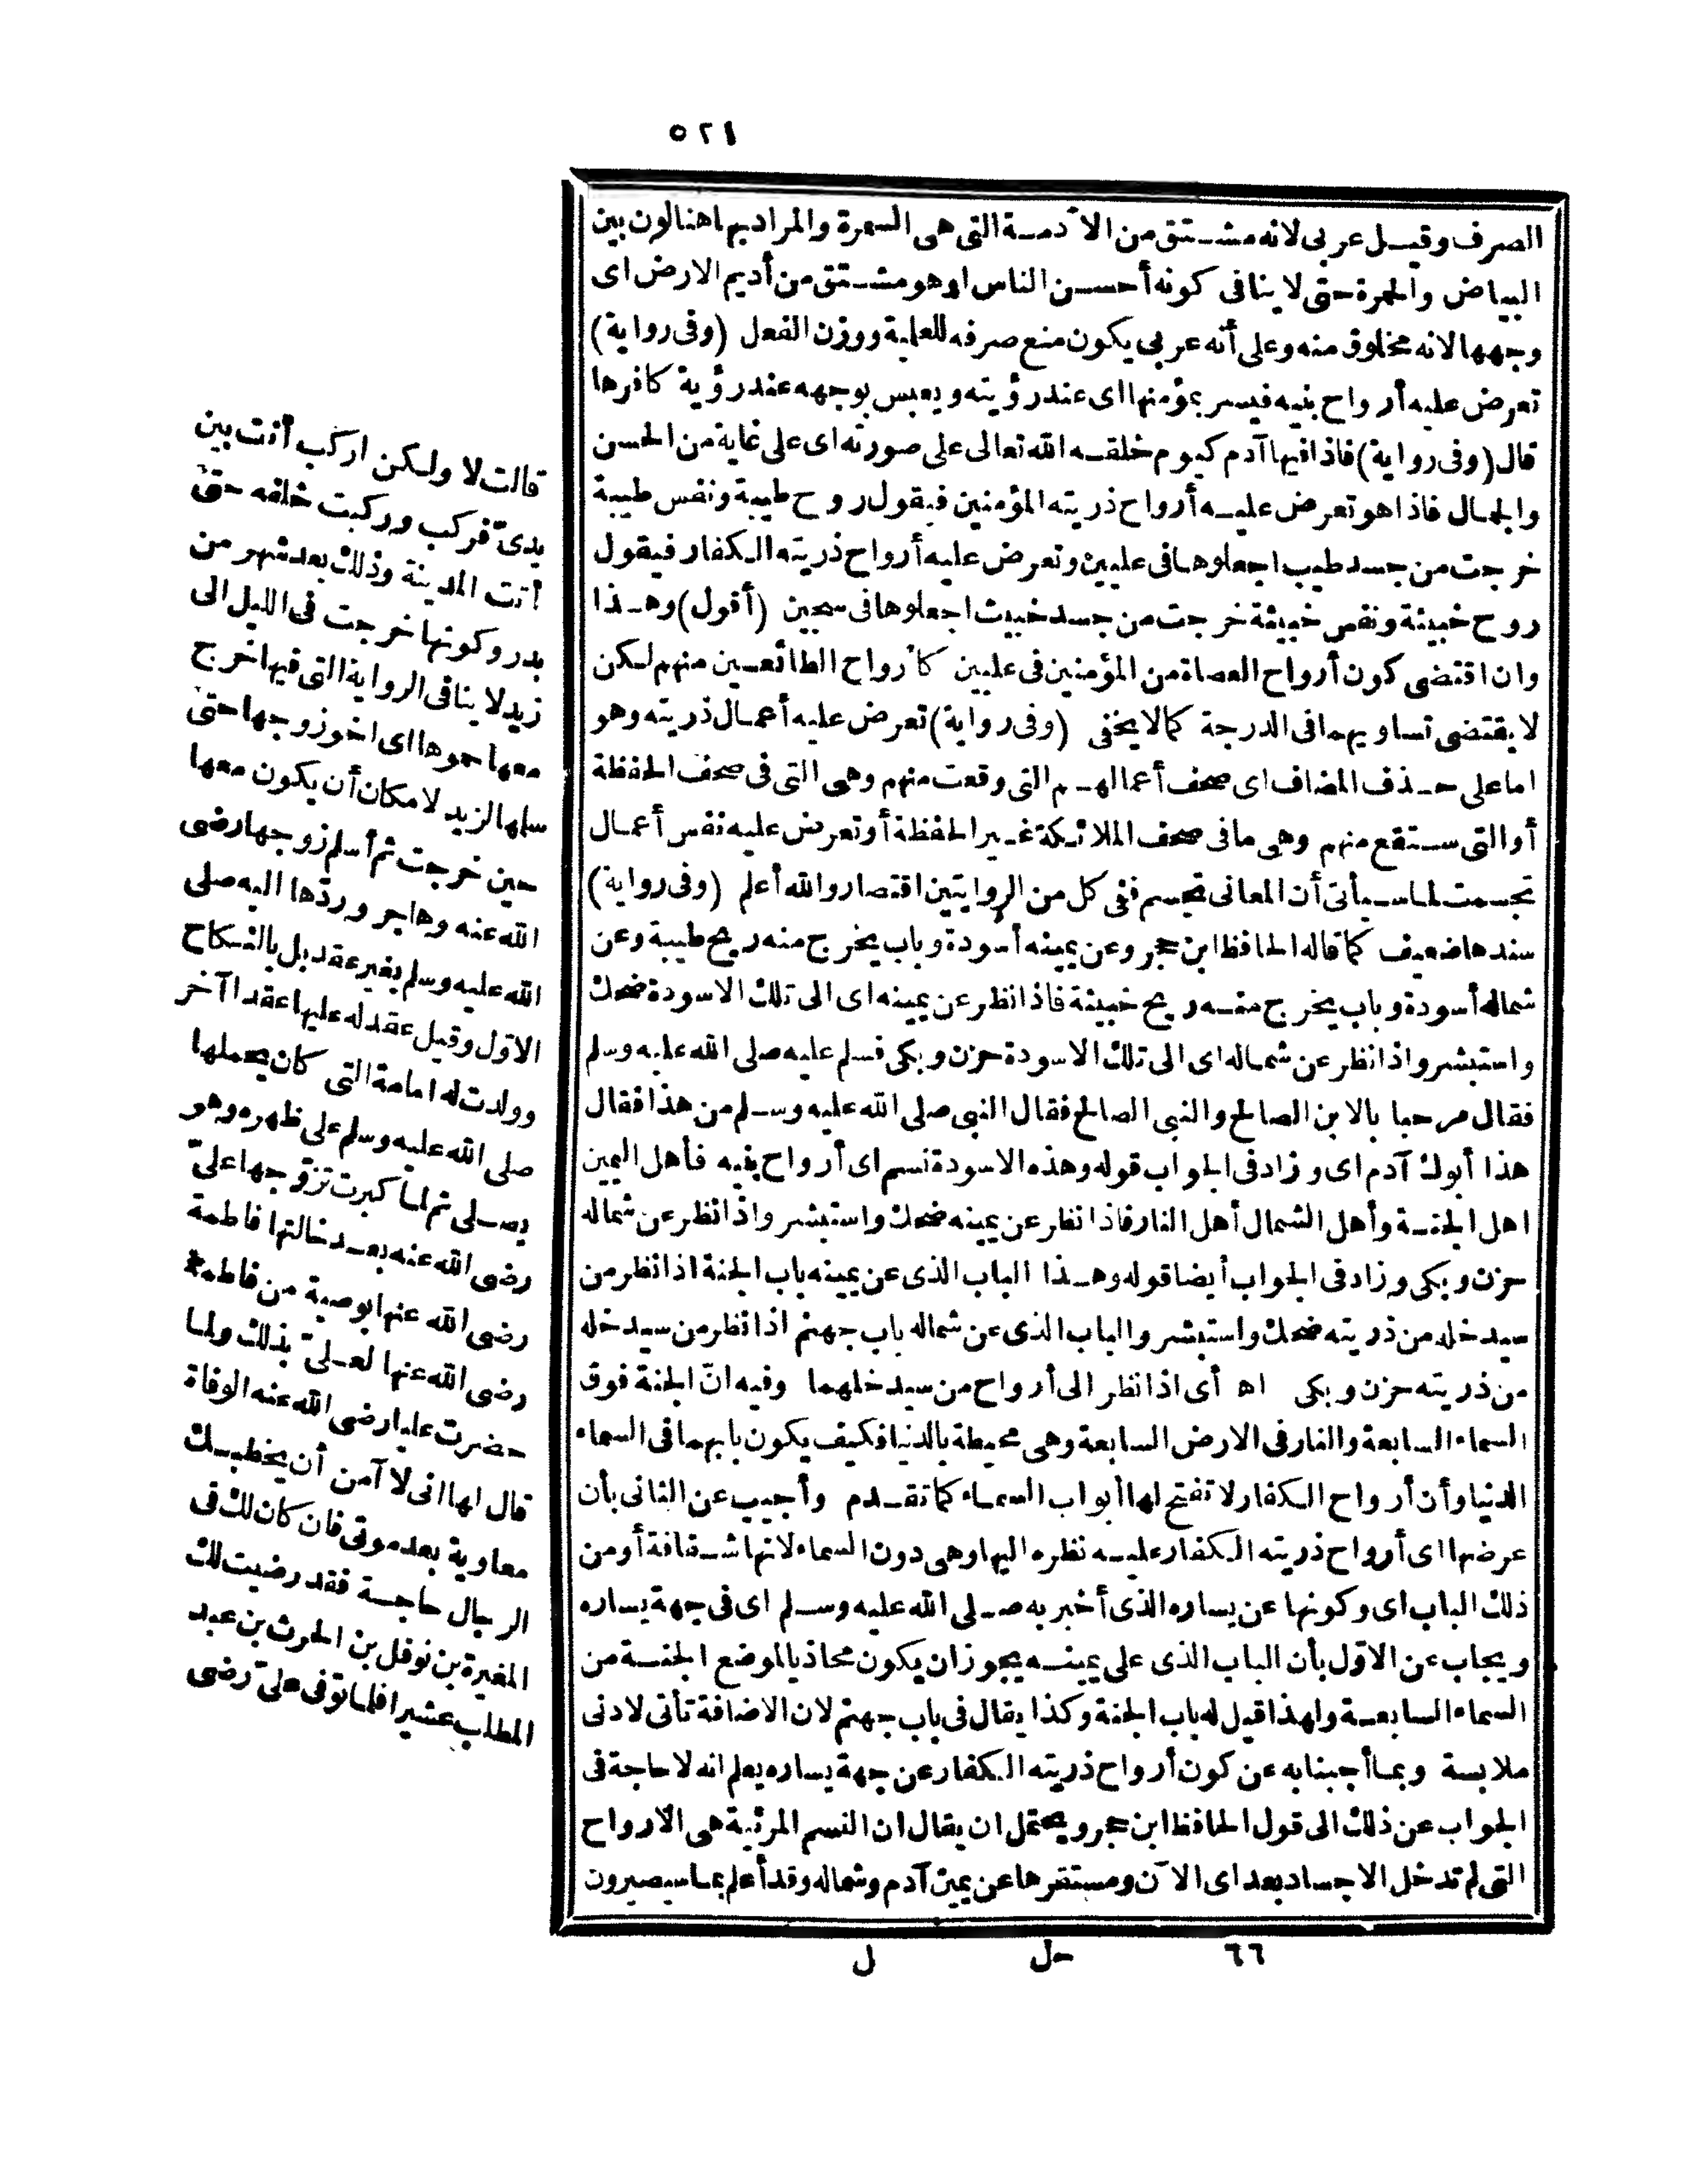 ٥٢١
الصرف وقيل عربى لانه مشتق من الا دمة التى هى السمرة والمراد بها هنا لون بين
البياض والحمرة حتى لا ينافى كونه أحسن الناس او هو مشتق من أديم الارض اى
وجهها لانه مخلوق منه وعلى أنه عربى يكون منع صرفه للعلمية ووزن الفعل (وفى رواية)
تعرض عليه أرواح بنيه فيسر بمؤمنها اى عند رؤيته ويعبس بوجهه عند رؤية كافرها
قال (وفى رواية) فاذا فيها آدم كيوم خلقه الله تعالى على صورته اى على غاية من الحسن
والجمال فاذا هو تعرض عليه أرواح ذريته المؤمنين فيقول روح طيبة ونفس طيبة
خرجت من جسد طيب اجعلوها فى عليين وتعرض عليه أرواح ذريته الكفار فيقول
روح خبيثة ونفس خبيثة خرجت من جسد خبيث اجعلوها فى سجين (أقول) وهذا
وان اقتضى كون أرواح العصاة من المؤمنين فى عليين كأرواح الطائعين منهم لكن
لا يقتضى تساويهما فى الدرجة كما لا يخفى (وفى رواية) تعرض عليه أعمال ذريته وهو
اما على حذف المضاف اى صحف أعمالهم التى وقعت منهم وهى التى فى صحف الحفظة
أو التى ستقع منهم وهى ما فى صحف الملائكة غير الحفظة أو تعرض عليه نفس أعمال
تجسمت لما سيأتى أن المعانى تجسم ففى كل من الروايتين اقتصار والله أعلم (وفى رواية)
سندها ضعيف كما قاله الحافظ ابن حجر وعن يمينه أسودة وباب يخرج منه ريح طيبة وعن
شماله أسودة وباب يخرج منه ريح خبيثة فاذا نظر عن يمينه اى الى تلك الاسودة ضحك
واستبشر واذا نظر عن شماله اى الى تلك الاسودة حزن وبكى فسلم عليه صلى الله عليه وسلم
فقال مرحبا بالابن الصالح والنبى الصالح فقال النبى صلى الله عليه وسلم من هذا فقال
هذا أبوك آدم اى وزاد فى الجواب قوله وهذه الاسودة نسم اى أرواح بنيه فأهل اليمين
اهل الجنة وأهل الشمال أهل النار فاذا نظر عن يمينه ضحك واستبشر واذا نظر عن شماله
حزن وبكى وزاد فى الجواب أيضا قوله وهذا الباب الذى عن يمينه باب الجنة اذا نظر من
سيدخله من ذريته ضحك واستبشر والباب الذى عن شماله باب جهنم اذا نظر من سيدخله
من ذريته حزن وبكى اه أى اذا نظر الى أرواح من سيدخلهما وفيه انّ الجنة فوق
السماء السابعة والنار فى الارض السابعة وهى محيطة بالدنيا فكيف يكون بابهما فى السماء
الدنيا وأن أرواح الكفار لا تفتح لها أبواب السماء كما تقدم وأجيب عن الثانى بأن
عرضها اى أرواح ذريته الكفار عليه نظره اليها وهى دون السماء لانها شفافة أو من
ذلك الباب اى وكونها عن يساره الذى أخبر به صلى الله عليه وسلم اى فى جهة يساره
ويجاب عن الاوّل بأن الباب الذى على يمينه يجوز ان يكون محاذيا لموضع الجنة من
السماء السابعة ولهذا قيل له باب الجنة وكذا يقال فى باب جهنم لان الاضافة تأتى لادنى
ملابسة وبما أجبنا به عن كون أرواح ذريته الكفار عن جهة يساره يعلم انه لا حاجة فى
الجواب عن ذلك الى قول الحافظ ابن حجر ويحتمل ان يقال ان النسم المرئية هى الارواح
التى لم تدخل الاجساد بعد اى الا ن ومستقرها عن يمين آدم وشماله وقد أعلم بما سيصيرون
٦٦ حل ل
قالت لا ولكن اركب أنت بين
يدىّ فركب وركبت خلفه حتى
أتت المدينة وذلك بعد شهر من
بدر وكونها خرجت فى الليل الى
زيد لا ينافى الرواية التى فيها خرج
معها حموها اى اخو زوجها حتى
سلمها لزيد لامكان أن يكون معها
حين خرجت ثم أسلم زوجها رضى
الله عنه وهاجر وردّها اليه صلى
الله عليه وسلم بغير عقد بل بالنكاح
الاوّل وقيل عقد له عليها عقدا آخر
وولدت له امامة التى كان يحملها
صلى الله عليه وسلم على ظهره وهو
يصلى ثم لما كبرت تزوّجها علىّ
رضى الله عنه بعد خالتها فاطمة
رضى الله عنها بوصية من فاطمة
رضى الله عنها لعلىّ بذلك ولما
حضرت عليا رضى الله عنه الوفاة
قال لها انى لا آمن أن يخطبك
معاوية بعد موتى فان كان لك فى
الرجال حاجة فقد رضيت لك
المغيرة بن نوفل بن الحرث بن عبد
المطلب عشيرا فلما توفى علىّ رضى